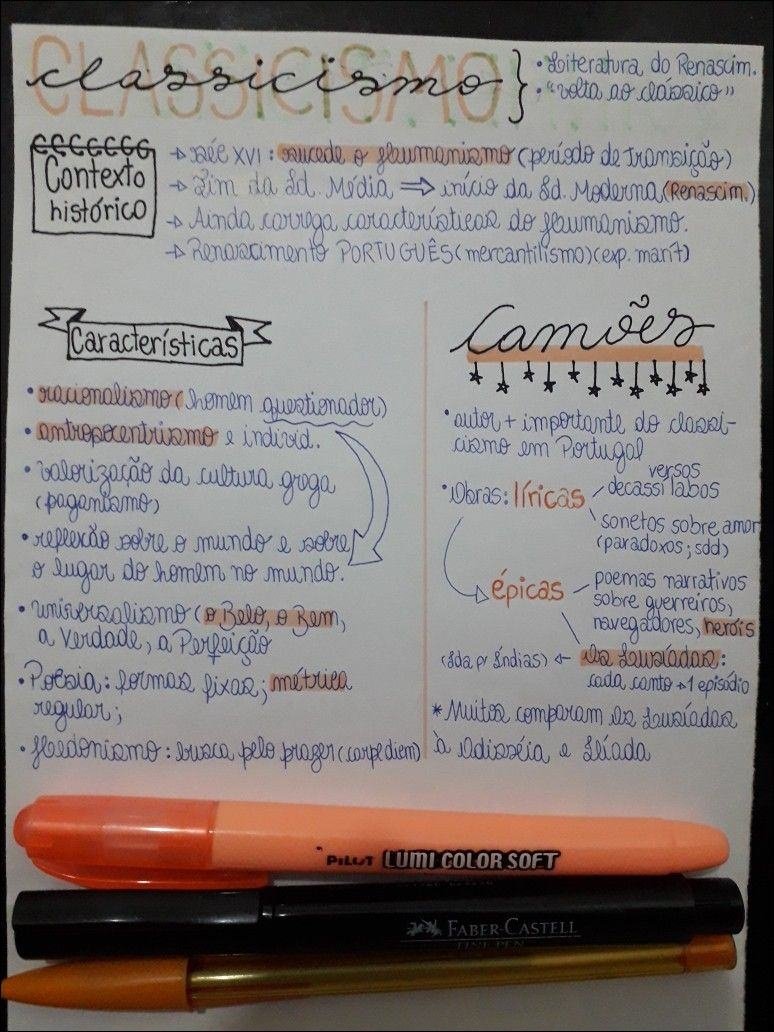 CLASSICISMO
classicismo
• Literatura do Renascim.
• "volta ao clássico"
Contexto
histórico
→ séc XVI: sucede o Humanismo (período de transição)
→ Fim da Id. Média ⇒ início da Id. Moderna (Renascim.)
→ Ainda carrega características do Humanismo.
→ Renascimento PORTUGUÊS (mercantilismo) (exp. marít)
Características
• racionalismo (homem questionador)
• antropocentrismo e individ.
• valorização da cultura grega
(paganismo)
• reflexão sobre o mundo e sobre
o lugar do homem no mundo.
• universalismo (o Belo, o Bem,
a Verdade, a Perfeição
• Poesia: formas fixas; métrica
regular;
• Hedonismo: busca pelo prazer (carpe diem)
Camões
• autor + importante do classi-
cismo em Portugal
• Obras: líricas
versos
decassílabos
sonetos sobre amor
(paradoxos; sdd)
épicas
poemas narrativos
sobre guerreiros,
navegadores, heróis
(Ida p/ Índias) ← Os Lusíadas:
cada canto → 1 episódio
* Muitos comparam Os Lusíadas
à Odisséia e Ilíada
PILOT LUMI COLOR SOFT
FABER-CASTELL
FINE PEN